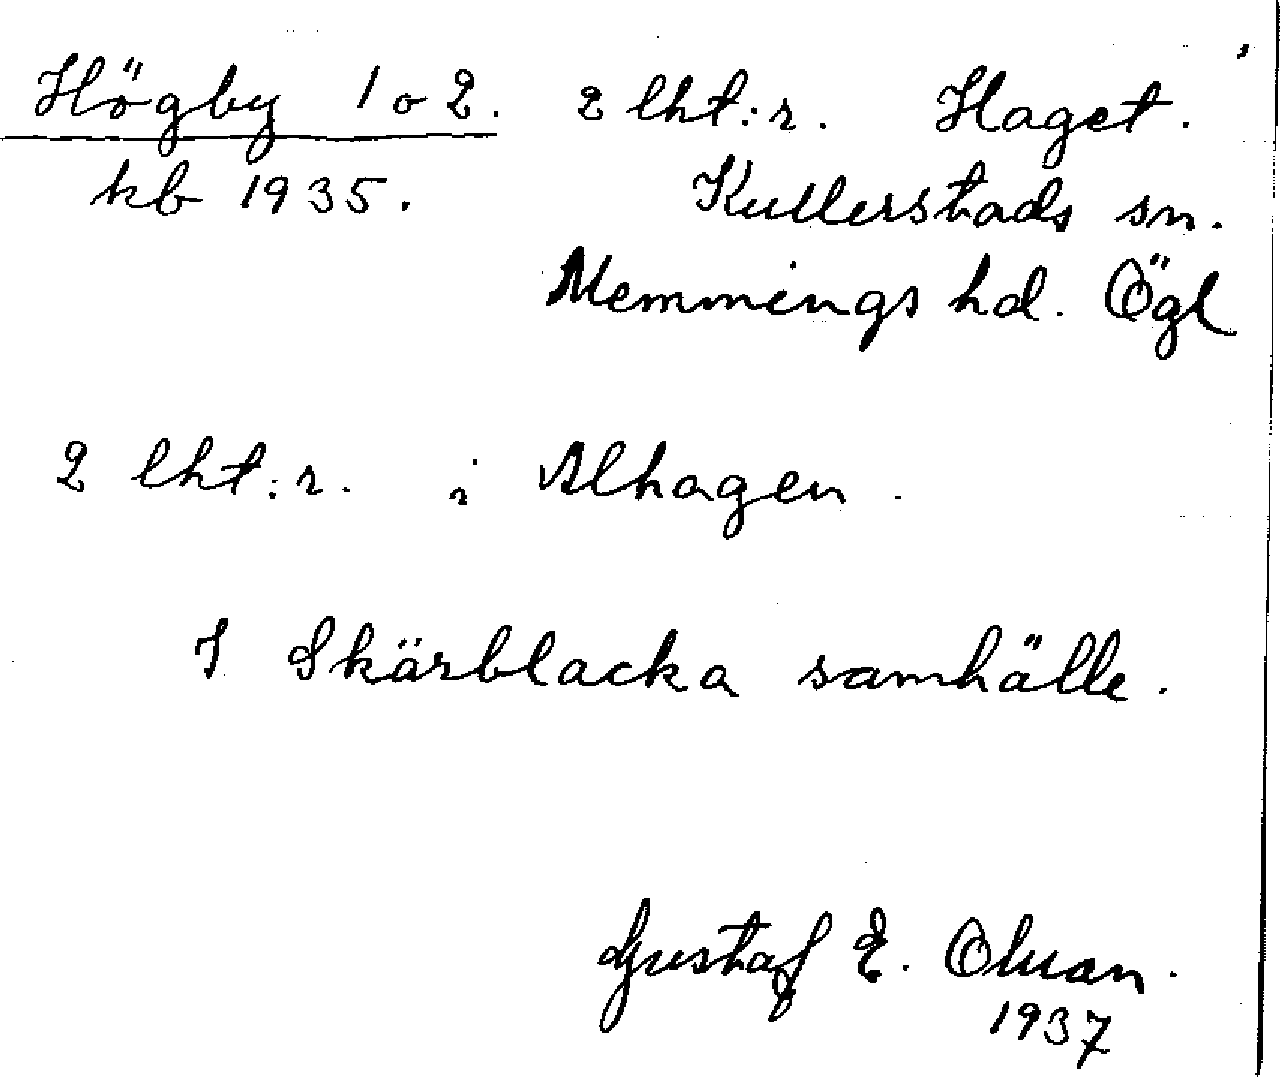 Högby 1 o 2. 2 lht:r. Haget.
kb 1935. Kullerstads sn.
Memmings hd. Ögl
2 lht:r. i Alhagen.
I Skärblacka samhälle.
Gustaf E.
1937